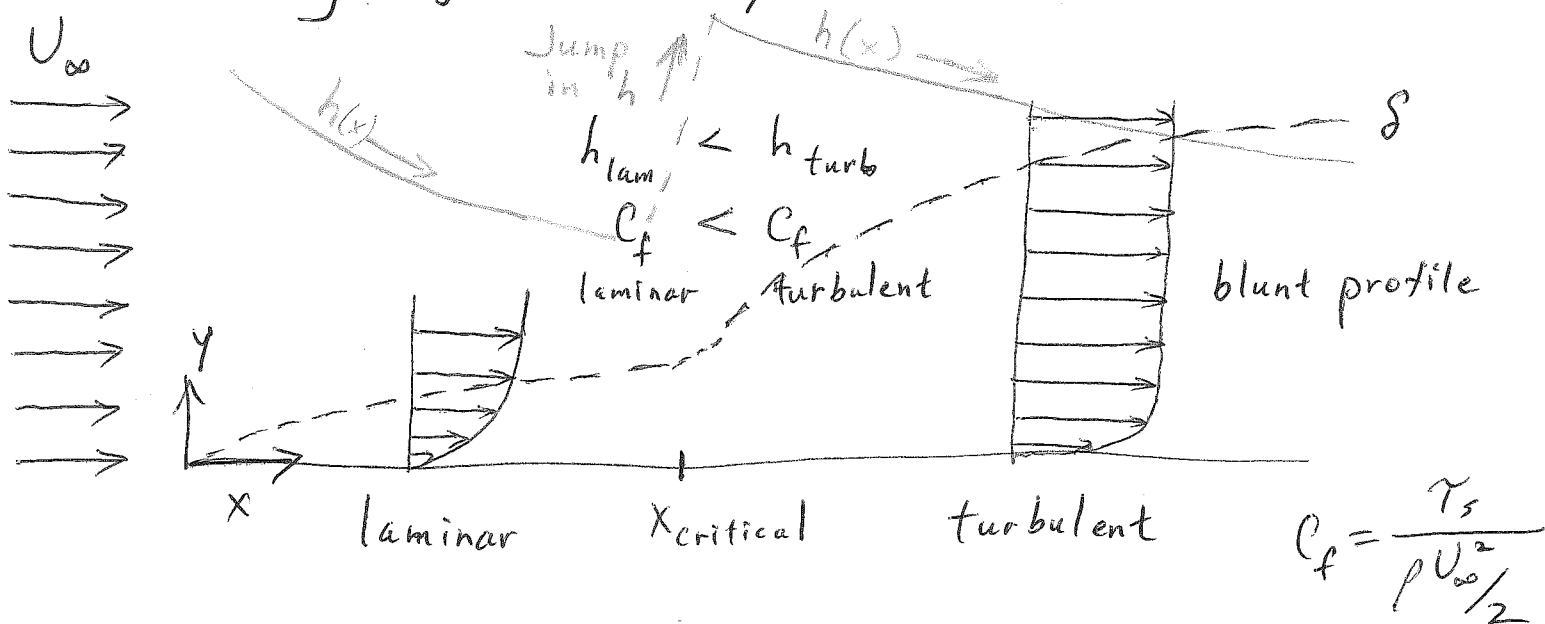 U∞
Jump
in h
h(x)
h(x)
h lam < h turb
C f < C f
laminar turbulent
δ
blunt profile
y
x
laminar
x critical
turbulent
C f = τ s / ρ U∞² / 2